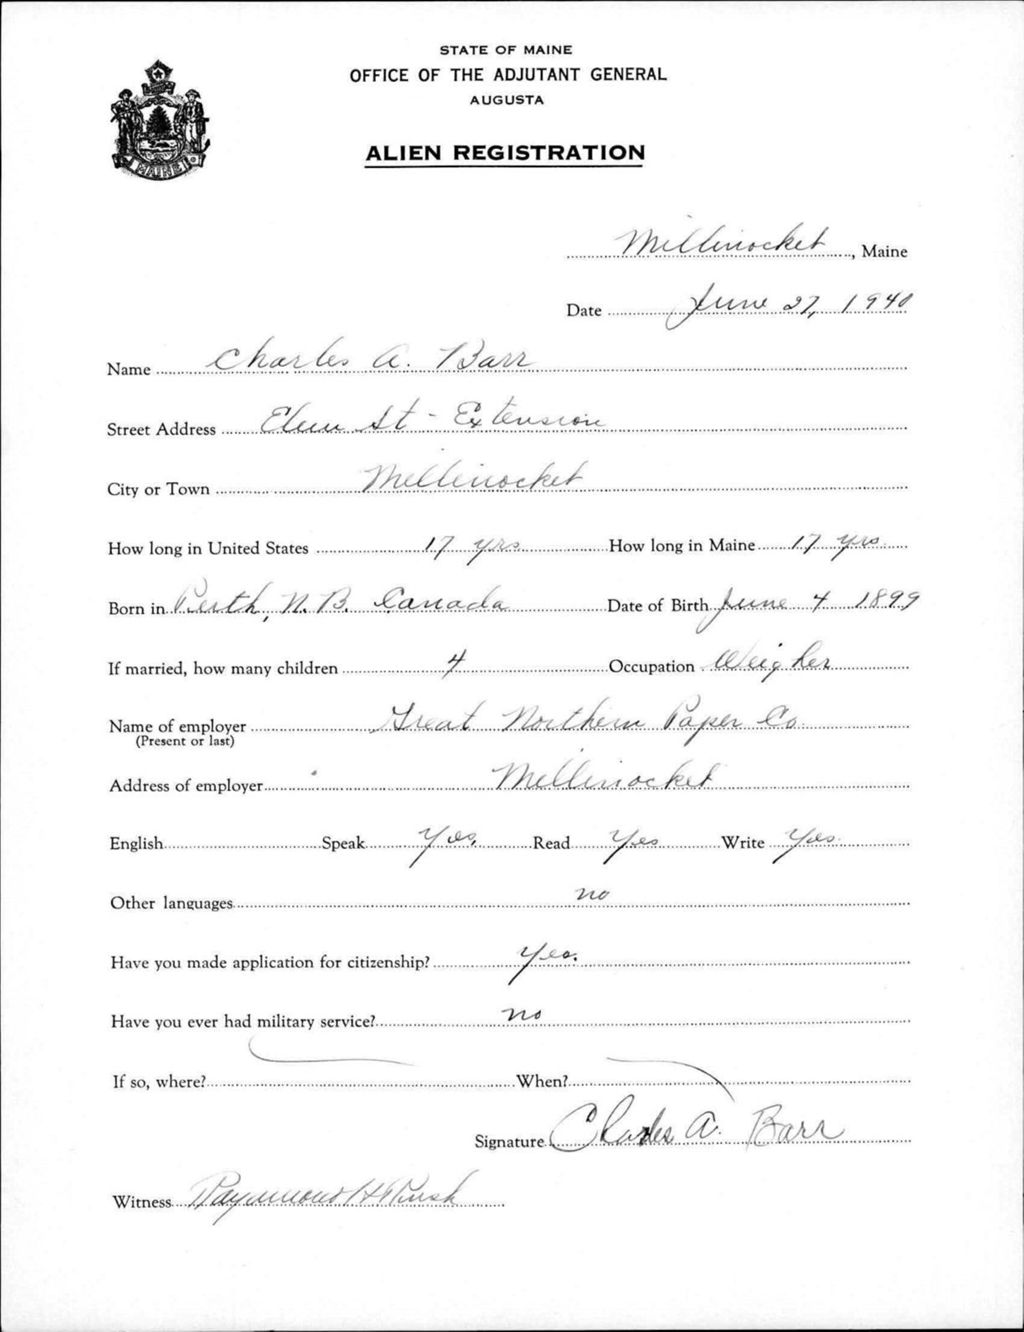 STATE OF MAINE
OFFICE OF THE ADJUTANT GENERAL
AUGUSTA
ALIEN REGISTRATION
MAINE
Millinocket, Maine
Date June 27, 1940
Name Charles A. Barr
Street Address Elm St - Extension
City or Town Millinocket
How long in United States 17 yrs How long in Maine 17 yrs
Born in Perth, N.B. Canada Date of Birth June 4 1899
If married, how many children 4 Occupation Weigher
Name of employer Great Northern Paper Co.
(Present or last)
Address of employer Millinocket
English Speak Yes, Read Yes Write Yes
Other languages no
Have you made application for citizenship? Yes.
Have you ever had military service? no
If so, where? When?
Signature Charles A. Barr
Witness Raymond H.